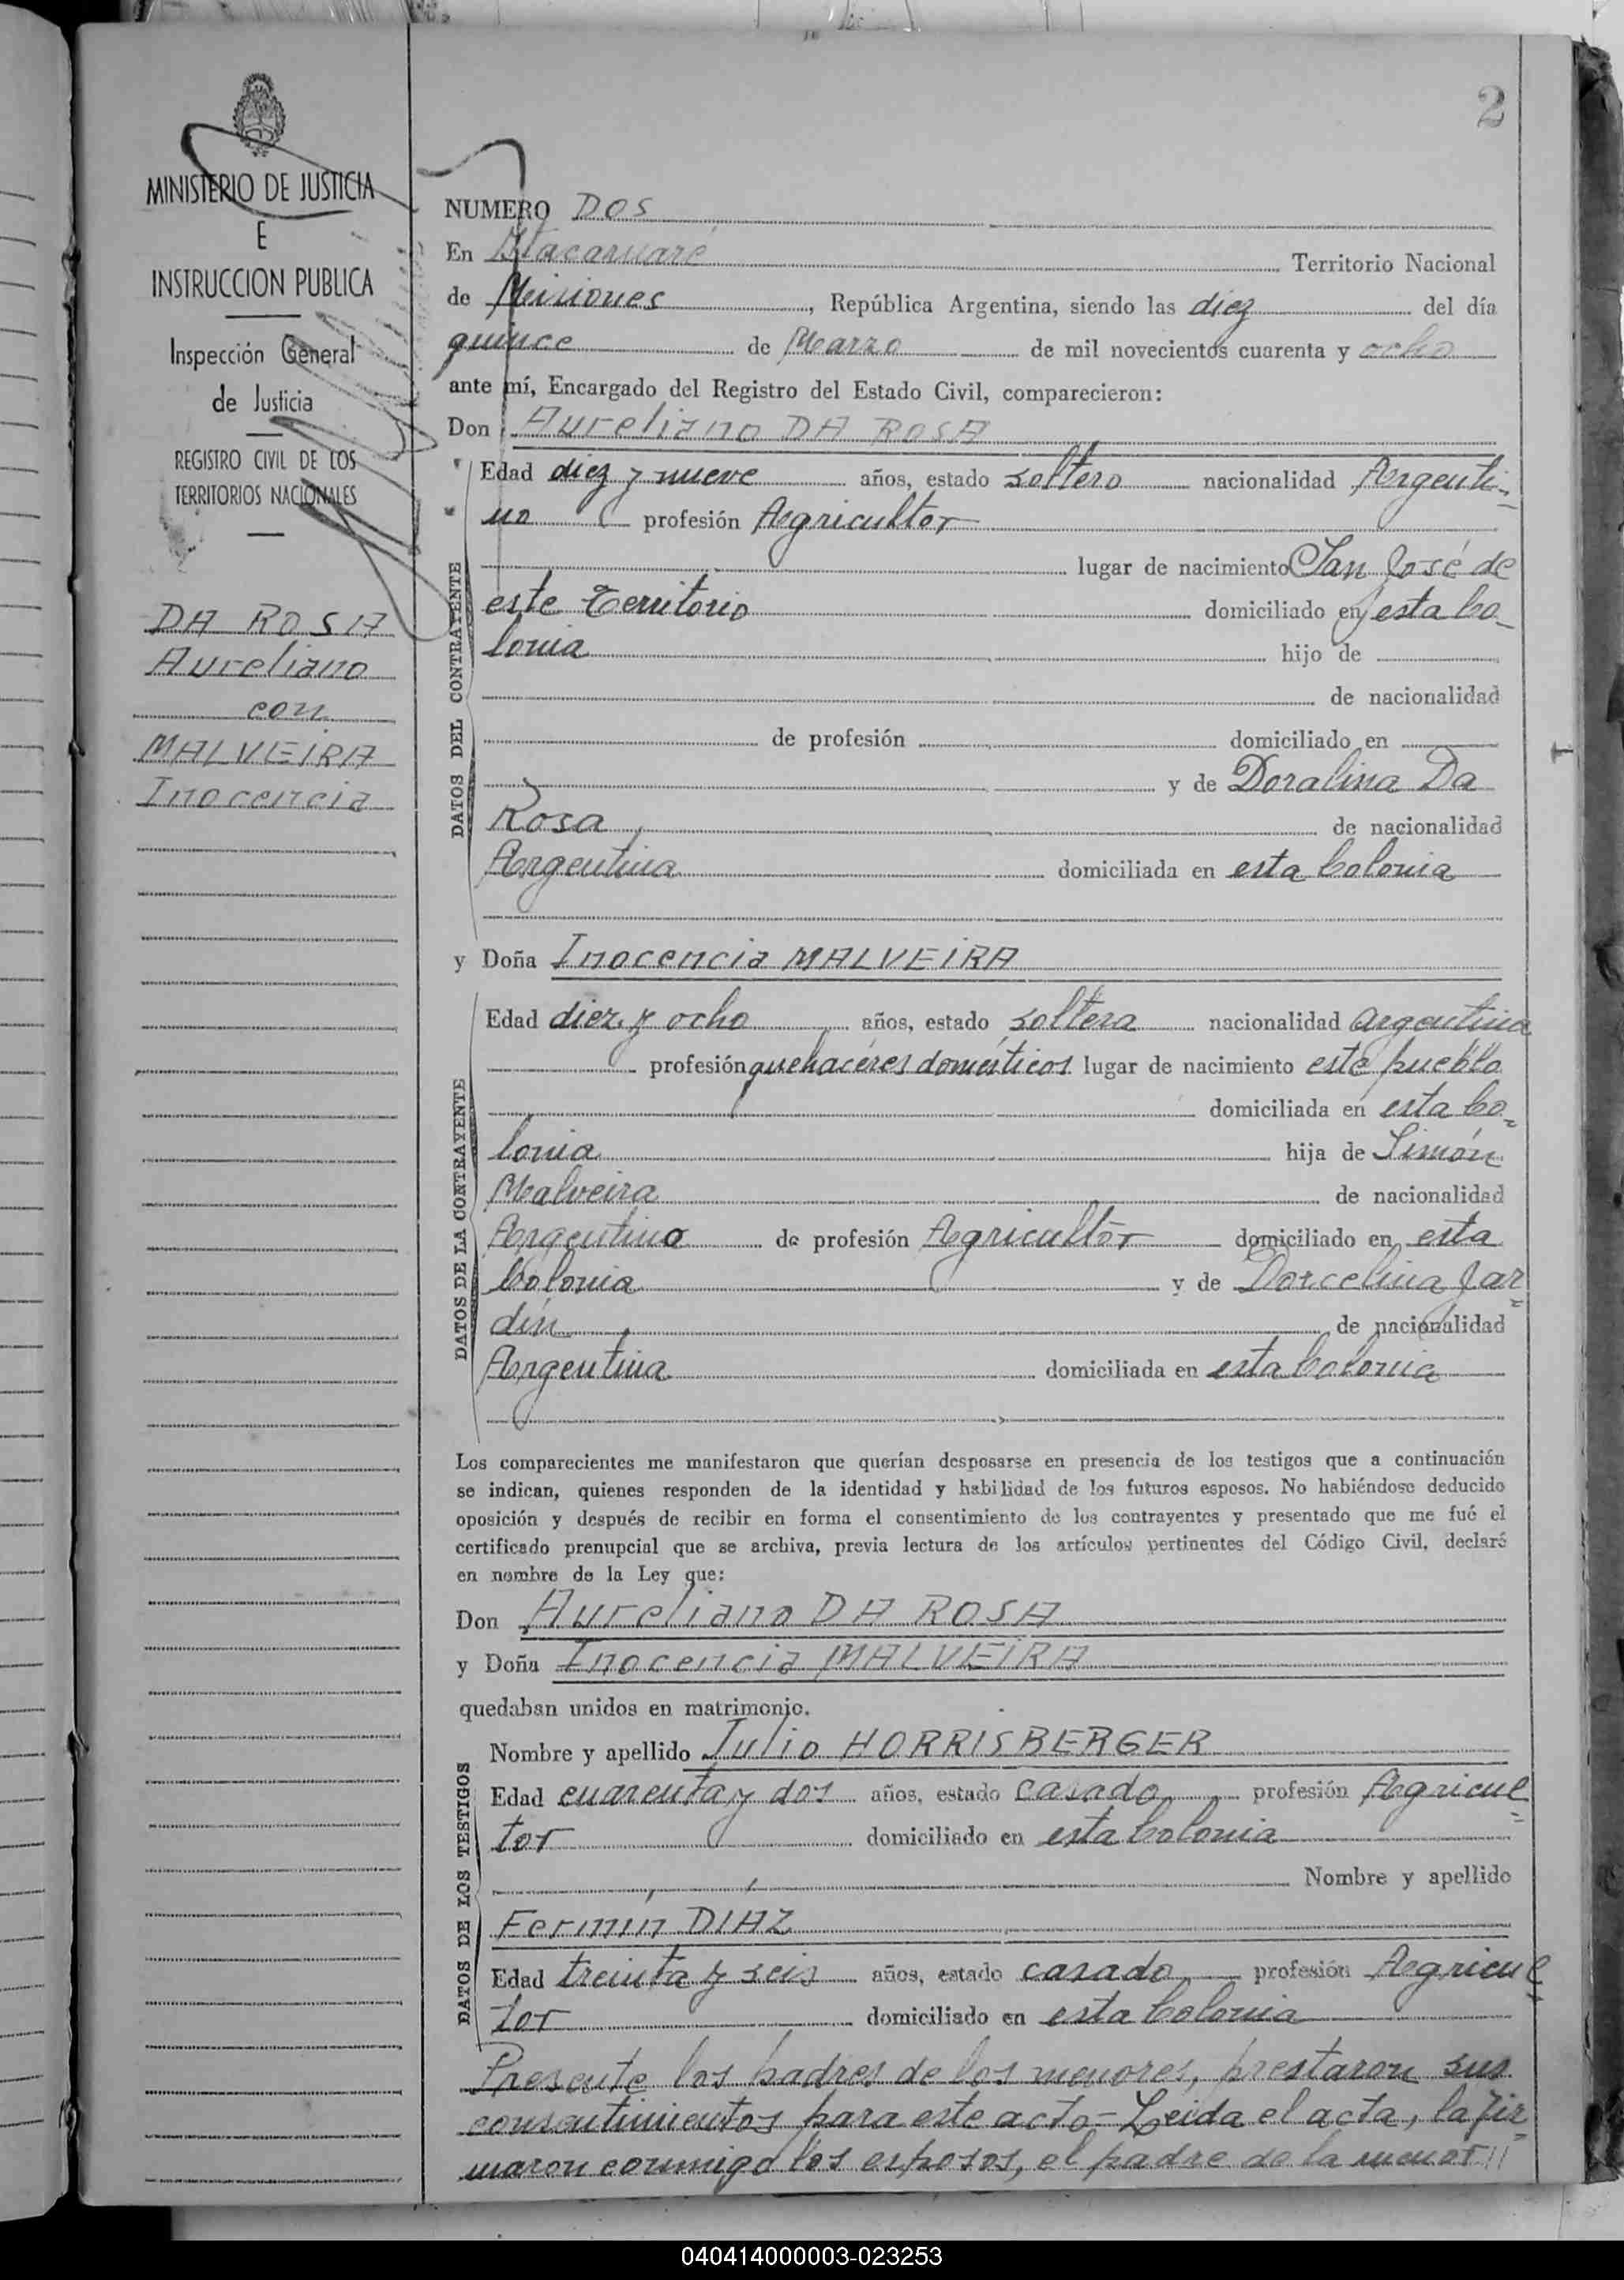 2
MINISTERIO DE JUSTICIA
E
INSTRUCCION PUBLICA
Inspección General
de Justicia
REGISTRO CIVIL DE LOS
TERRITORIOS NACIONALES
DA ROSA
Aureliano
con
MALVEIRA
Inocencia
NUMERO DOS
En Itacaruaré Territorio Nacional
de Misiones, República Argentina, siendo las diez del día
quince de Marzo de mil novecientos cuarenta y ocho
ante mí, Encargado del Registro del Estado Civil, comparecieron:
Don Aureliano DA ROSA
DATOS DEL CONTRAYENTE
Edad diez y nueve años, estado soltero nacionalidad Argenti-
no profesión Agricultor
lugar de nacimiento San José de
este Territorio domiciliado en esta Co-
lonia hijo de
de nacionalidad
de profesión domiciliado en
y de Doralina Da
Rosa, de nacionalidad
Argentina domiciliada en esta Colonia
y Doña Inocencia MALVEIRA
DATOS DE LA CONTRAYENTE
Edad diez y ocho años, estado soltera nacionalidad argentina
profesión quehaceres domésticos lugar de nacimiento este pueblo
domiciliada en esta Co-
lonia hija de Simón
Malveira de nacionalidad
Argentino de profesión Agricultor domiciliado en esta
Colonia y de Dorcelina Jar-
dín de nacionalidad
Argentina domiciliada en esta Colonia
Los comparecientes me manifestaron que querían desposarse en presencia de los testigos que a continuación
se indican, quienes responden de la identidad y habilidad de los futuros esposos. No habiéndose deducido
oposición y después de recibir en forma el consentimiento de los contrayentes y presentado que me fué el
certificado prenupcial que se archiva, previa lectura de los artículos pertinentes del Código Civil, declaré
en nombre de la Ley que:
Don Aureliano DA ROSA
y Doña Inocencia MALVEIRA
quedaban unidos en matrimonio.
DATOS DE LOS TESTIGOS
Nombre y apellido Julio HORRISBERGER
Edad cuarenta y dos años, estado casado profesión Agricul-
tor domiciliado en esta Colonia
Nombre y apellido
Fermín DÍAZ
Edad treinta y seis años, estado casado profesión Agricul-
tor domiciliado en esta Colonia
Presente los padres de los menores, prestaron sus
consentimientos para este acto - Leída el acta, la fir-
maron conmigo los esposos, el padre de la menor //
040414000003-023253